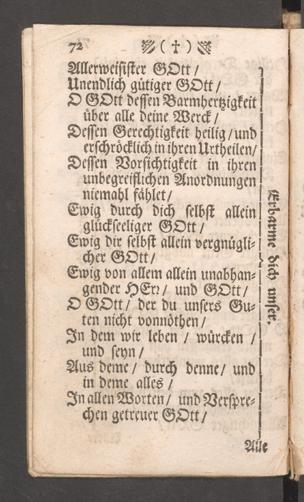 72 ( † )
Allerweisister GOtt /
Unendlich gütiger GOtt /
O GOtt dessen Barmhertzigkeit
über alle deine Werck /
Dessen Gerechtigkeit heilig / und
erschröcklich in ihren Urtheilen /
Dessen Vorsichtigkeit in ihren
unbegreiflichen Anordnungen
niemahl fählet /
Ewig durch dich selbst allein
glückseeliger GOtt /
Ewig dir selbst allein vergnügli-
cher GOtt /
Ewig von allem allein unabhan-
gender HErr / und GOtt /
O GOtt / der du unsers Gu-
ten nicht vonnöthen /
In dem wir leben / würcken /
und seyn /
Aus deme / durch denne / und
in deme alles /
In allen Worten / und Verspre-
chen getreuer GOtt /
Erbarme dich unser.
Alle